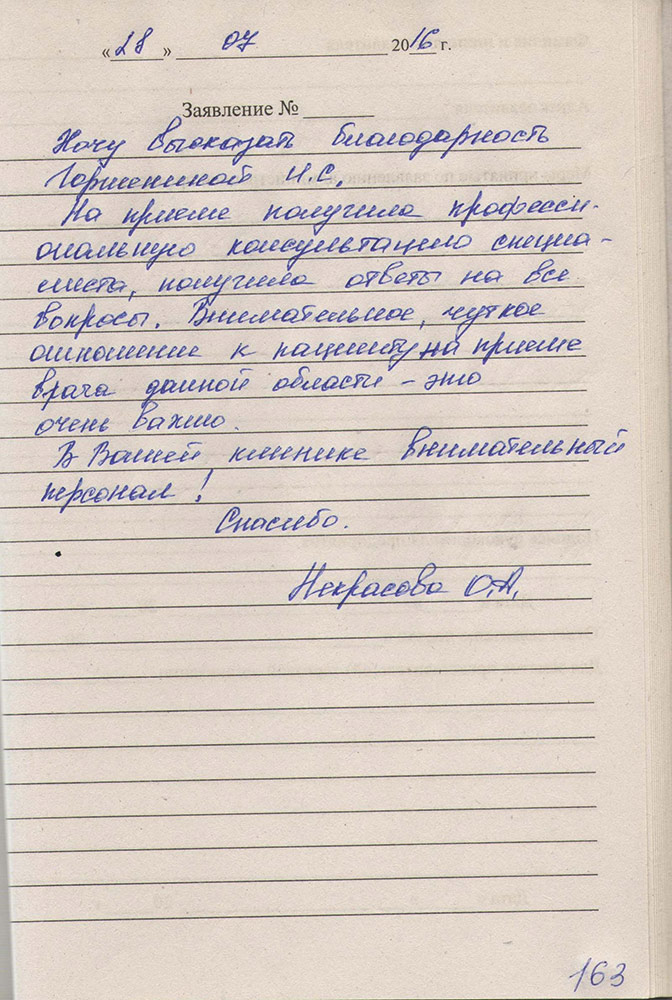 «28» 07 2016 г.
Заявление №
Хочу высказать благодарность
Горжениной И.С.
На приеме получила професси-
ональную консультацию специа-
листа, получила ответы на все
вопросы. Внимательное, чуткое
отношение к пациенту на приеме
врача данной области – это
очень важно.
В Вашей клинике внимательный
персонал!
Спасибо.
Некрасова О.А.
163